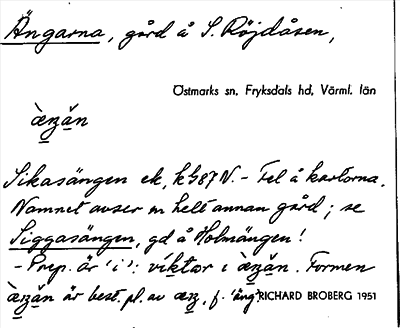 Ängarna, gård å S. Röjdåsen,
Östmarks sn, Fryksdals hd, Värml. län
Sikasängen ek, k 587 N. - Fel å kartorna.
Namnet avser en helt annan gård; se
Siggasängen, gd å Holmängen!
- Prep. är 'i': i . Formen
är best. pl. av , f. 'äng' RICHARD BROBERG 1951